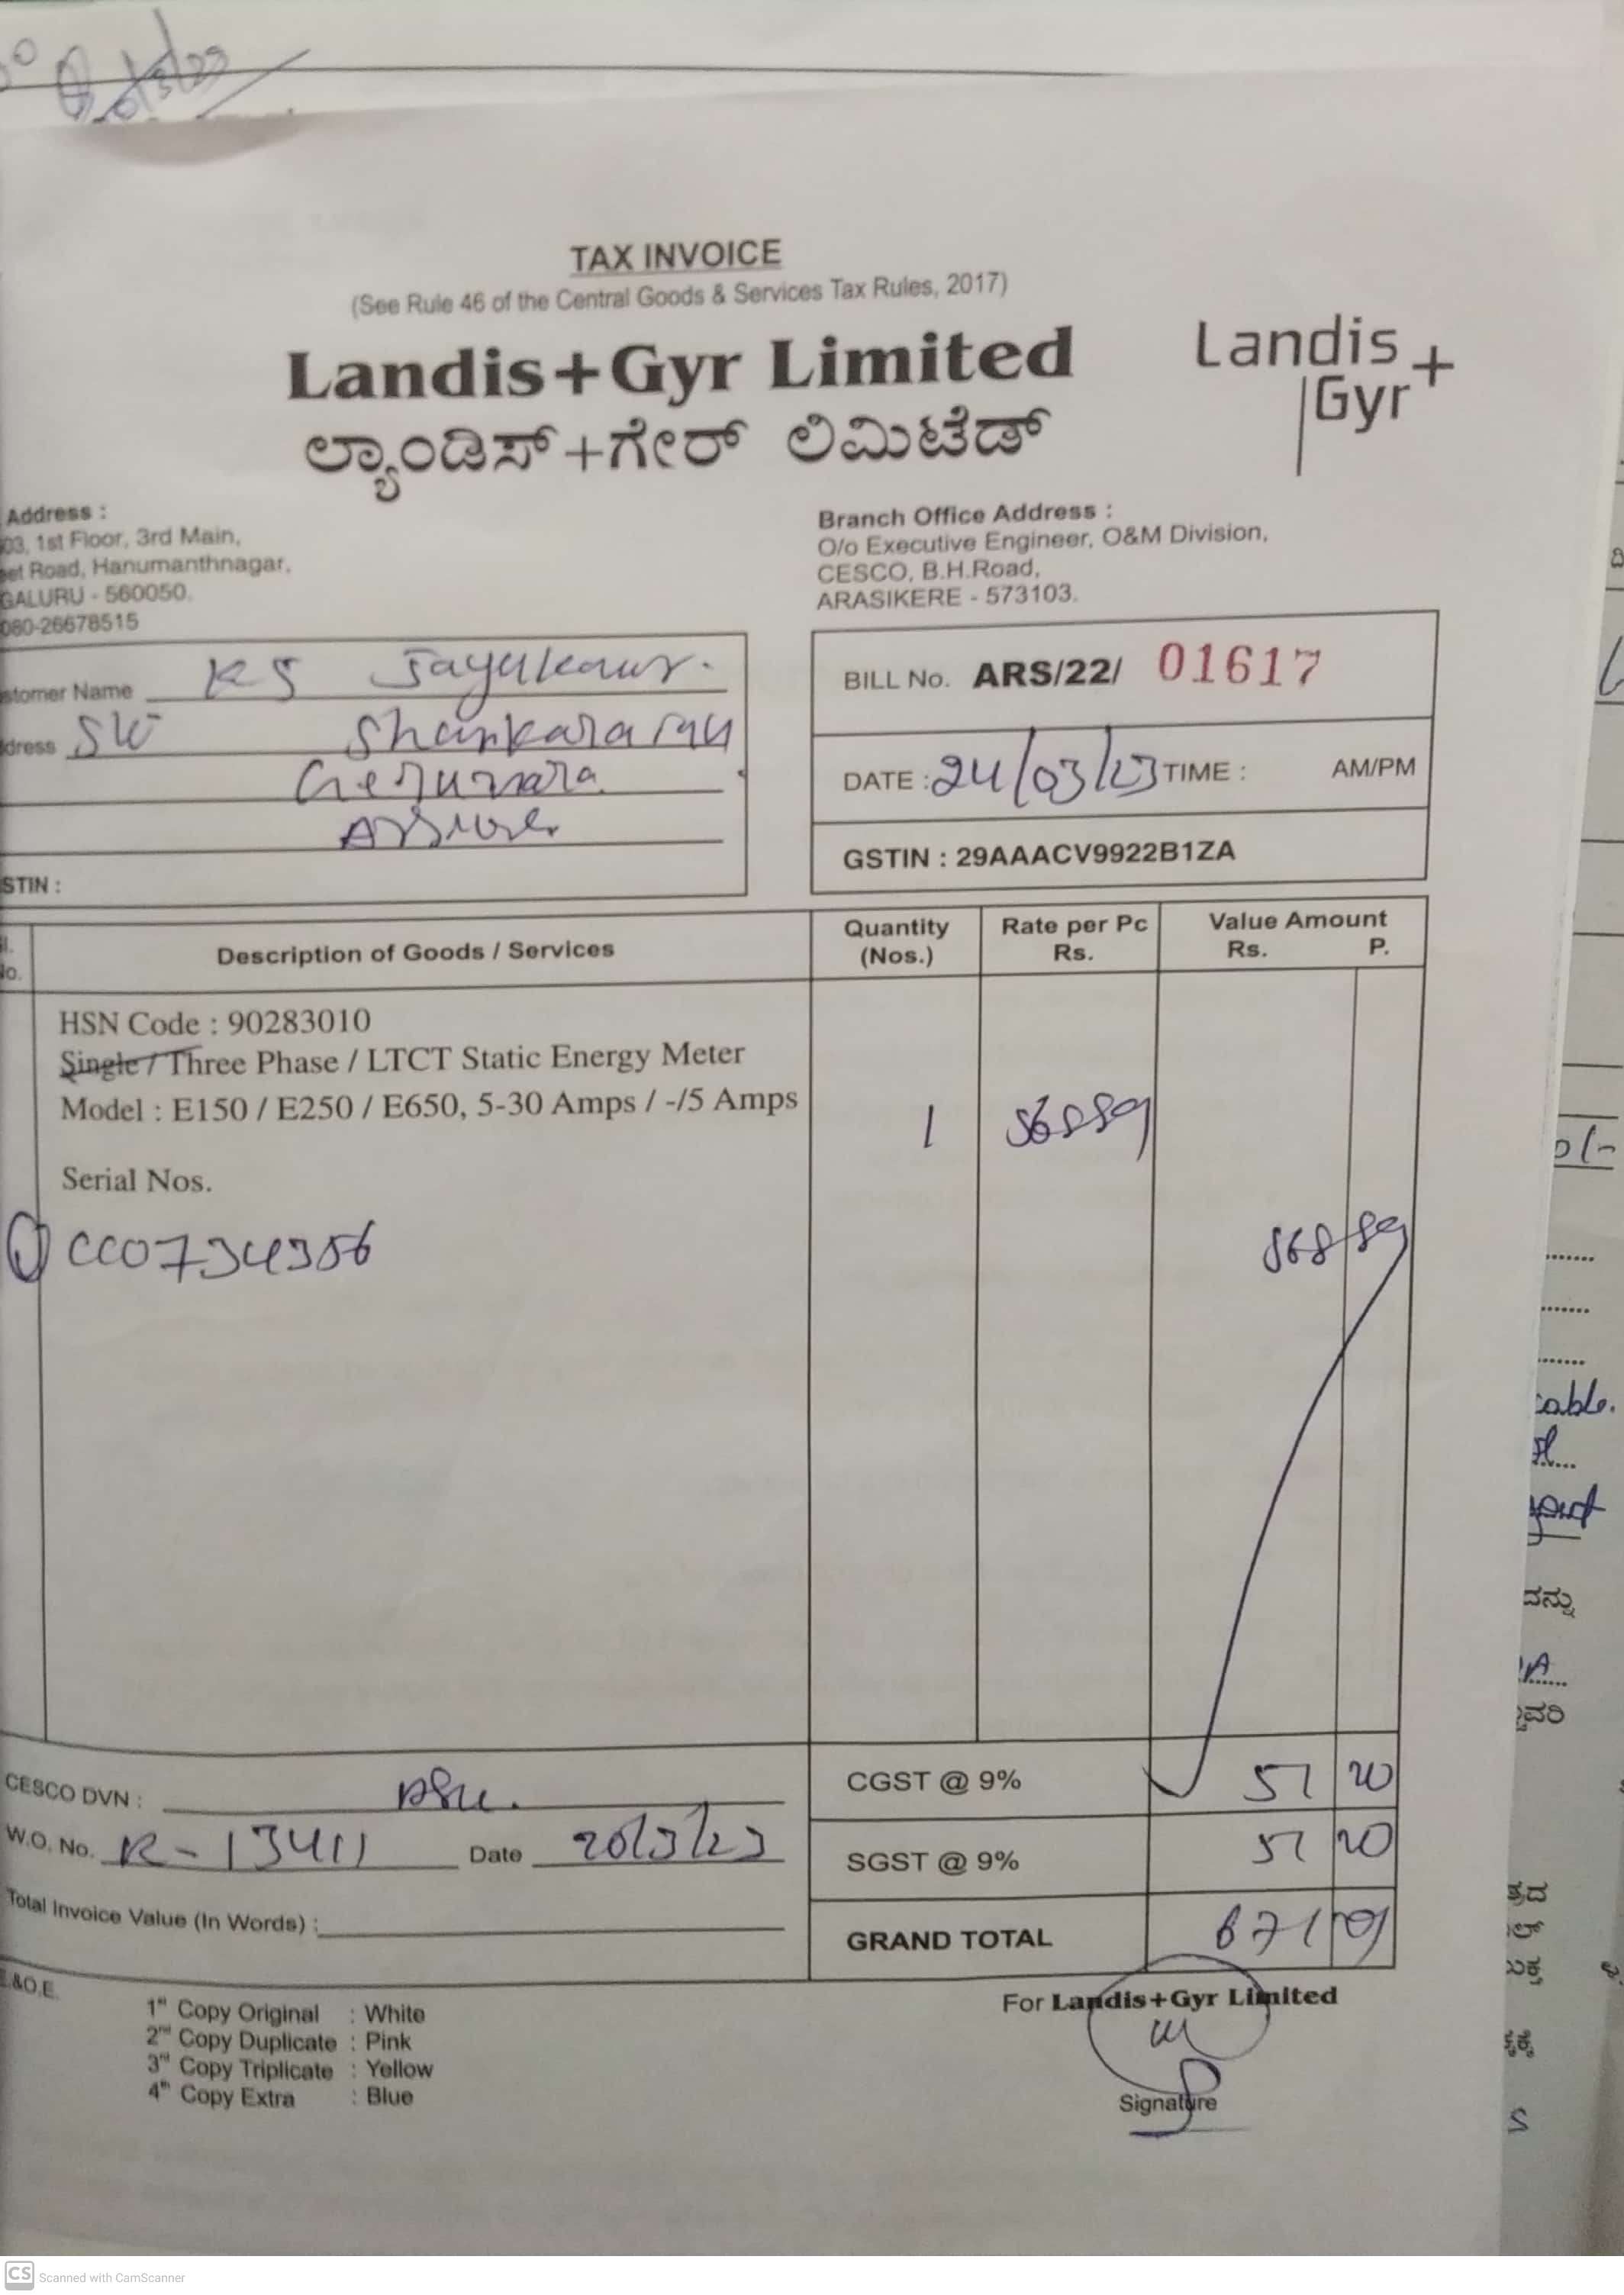 TAX INVOICE
(See Rule 46 of the Central Goods & Services Tax Rules, 2017)
Landis+Gyr Limited
ಲ್ಯಾಂಡಿಸ್+ಗೇರ್ ಲಿಮಿಟೆಡ್
Landis+
Gyr
Address :
03, 1st Floor, 3rd Main,
eet Road, Hanumanthnagar,
GALURU - 560050.
080-26678515
Branch Office Address :
O/o Executive Engineer, O&M Division,
CESCO, B.H.Road,
ARASIKERE - 573103.
stomer Name KS
dress Shankara
STIN :
BILL No. ARS/22/ 01617
DATE : 24/03/23 TIME : AM/PM
GSTIN : 29AAACV9922B1ZA
l. No. Description of Goods / Services Quantity (Nos.) Rate per Pc Rs. Value Amount Rs. P.
HSN Code : 90283010
Single / Three Phase / LTCT Static Energy Meter
Model : E150 / E250 / E650, 5-30 Amps / -/5 Amps
1 568 89
Serial Nos.
1 CC0734356
568 89
CESCO DVN :
CGST @ 9% 51 20
W.O. No. R-13411 Date 20/3/23
SGST @ 9% 51 20
Total Invoice Value (In Words) :
GRAND TOTAL 671
.&O.E.
1st Copy Original : White
2nd Copy Duplicate : Pink
3rd Copy Triplicate : Yellow
4th Copy Extra : Blue
For Landis+Gyr Limited
Signature
cable.
CS Scanned with CamScanner